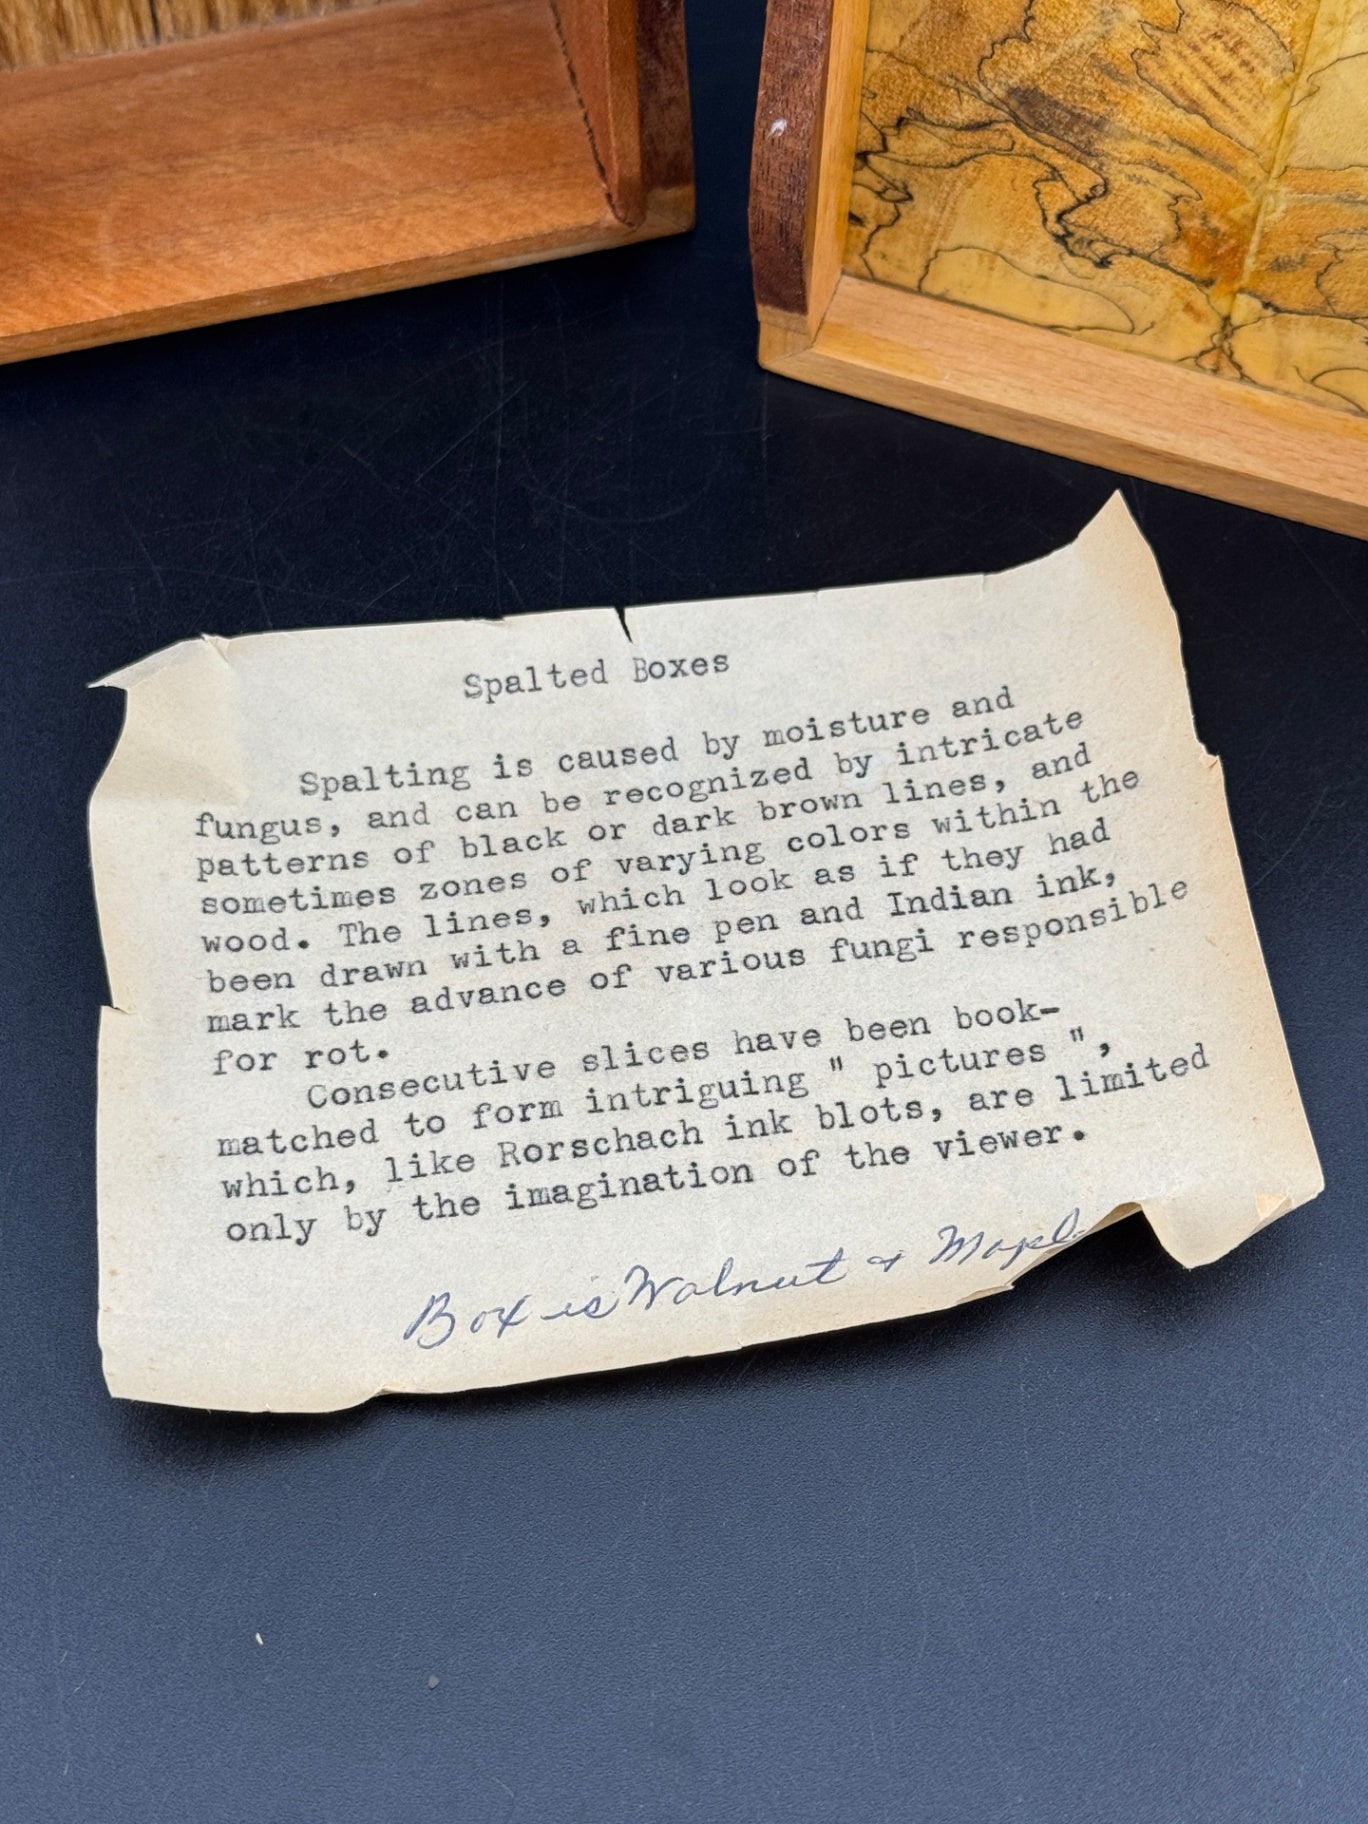 Spalted Boxes
Spalting is caused by moisture and
fungus, and can be recognized by intricate
patterns of black or dark brown lines, and
sometimes zones of varying colors within the
wood. The lines, which look as if they had
been drawn with a fine pen and Indian ink,
mark the advance of various fungi responsible
for rot.
Consecutive slices have been book-
matched to form intriguing " pictures ",
which, like Rorschach ink blots, are limited
only by the imagination of the viewer.
Box is Walnut & Maple